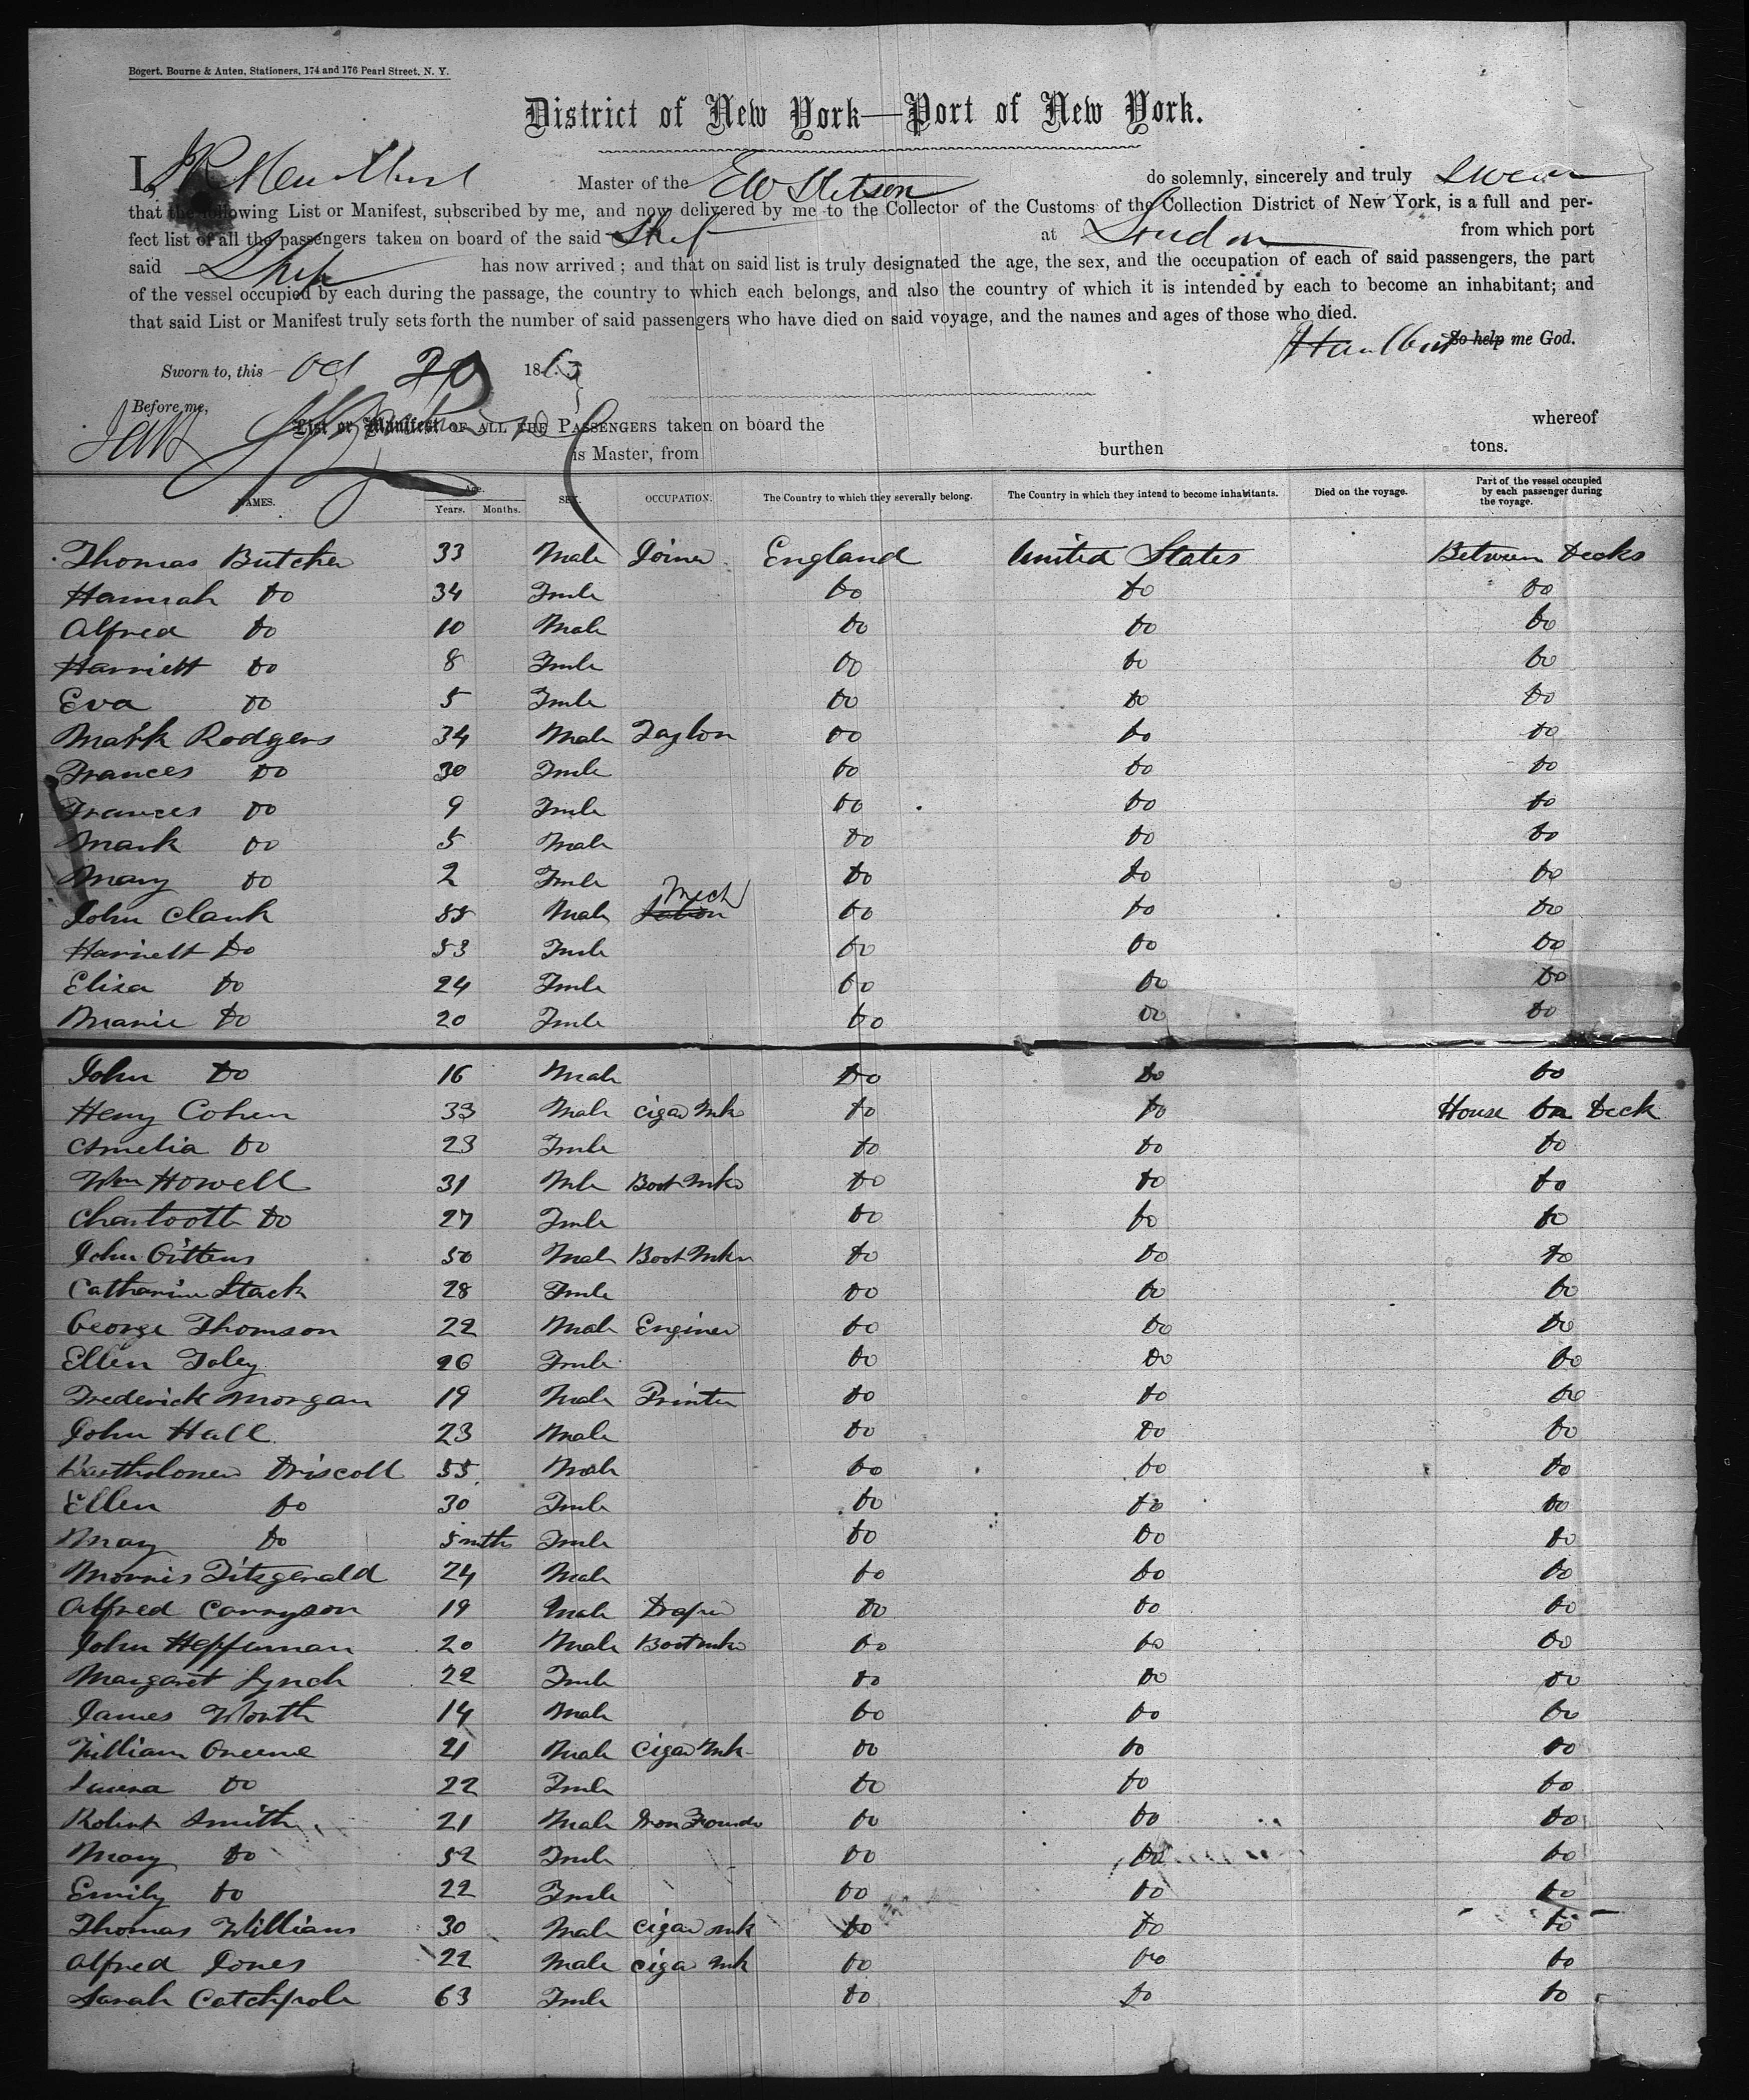 Bogert, Bourne & Auten, Stationers, 174 and 176 Pearl Street, N. Y.
District of New York—Port of New York.
I, Master of the E W Stetson do solemnly, sincerely and truly swear
that the following List or Manifest, subscribed by me, and now delivered by me to the Collector of the Customs of the Collection District of New York, is a full and per-
fect list of all the passengers taken on board of the said Ship at London from which port
said Ship has now arrived; and that on said list is truly designated the age, the sex, and the occupation of each of said passengers, the part
of the vessel occupied by each during the passage, the country to which each belongs, and also the country of which it is intended by each to become an inhabitant; and
that said List or Manifest truly sets forth the number of said passengers who have died on said voyage, and the names and ages of those who died.
So help me God.
Sworn to, this Oct 20 186
Before me,
List or Manifest OF ALL THE PASSENGERS taken on board the whereof
is Master, from burthen tons.
NAMES. Age. Years. Months. SEX. OCCUPATION. The Country to which they severally belong. The Country in which they intend to become inhabitants. Died on the voyage. Part of the vessel occupied by each passenger during the voyage.
Thomas Butcher 33 Male Joiner England United States Between Decks
Hannah Do 34 Fmle Do Do Do
Alfred Do 10 Male Do Do Do
Harriett Do 8 Fmle Do Do Do
Eva Do 5 Fmle Do Do Do
Mark Rodgers 34 Male Taylor Do Do Do
Frances Do 30 Fmle Do Do Do
Frances Do 9 Fmle Do Do Do
Mark Do 5 Male Do Do Do
Mary Do 2 Fmle Do Do Do
John Clark 55 Male Mech Do Do Do
Harriett Do 53 Fmle Do Do Do
Eliza Do 24 Fmle Do Do Do
Marie Do 20 Fmle Do Do Do
John Do 16 Male Do Do Do
Henry Cohen 33 Male Cigar Mkr Do Do House On Deck
Amelia Do 23 Fmle Do Do Do
Wm Howell 31 Mle Boot Mkr Do Do Do
Do 27 Fmle Do Do Do
John Gittens 50 Male Boot Mkr Do Do Do
Catharine Stack 28 Fmle Do Do Do
George Thomson 22 Male Enginer Do Do Do
Ellen Foley 26 Fmle Do Do Do
Frederick Morgan 19 Male Printer Do Do Do
John Hall 23 Male Do Do Do
Bartholomew Driscoll 55 Male Do Do Do
Ellen Do 30 Fmle Do Do Do
Mary Do 5 mths Fmle Do Do Do
Morris Fitzgerald 24 Male Do Do Do
Alfred Carryson 19 Male Draper Do Do Do
John Heffernan 20 Male Bootmkr Do Do Do
Margaret Lynch 22 Fmle Do Do Do
James Worth 14 Male Do Do Do
William Greene 21 Male Cigar Mk Do Do Do
Do 22 Fmle Do Do Do
Robert Smith 21 Male Iron Founder Do Do Do
Mary Do 52 Fmle Do Do Do
Emily Do 22 Fmle Do Do Do
Thomas Williams 30 Male Cigar Mk Do Do Do
Alfred Jones 22 Male Ciga Mk Do Do Do
Sarah Catchpole 63 Fmle Do Do Do